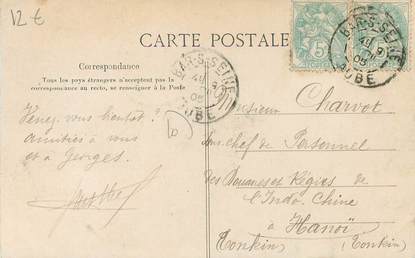 12 €
CARTE POSTALE
Correspondance
Tous les pays étrangers n'acceptent pas la
correspondance au recto, se renseigner à la Poste
BAR-S-SEINE
AUBE
BAR-S-SEINE
AUBE
Venez vous bientôt ?
Amitiés à vous
et à Georges.
Monsieur Charvot
chef de Personnel
des Douanes et Régies de
l'Indo-Chine
à Hanoï
Tonkin (Tonkin)